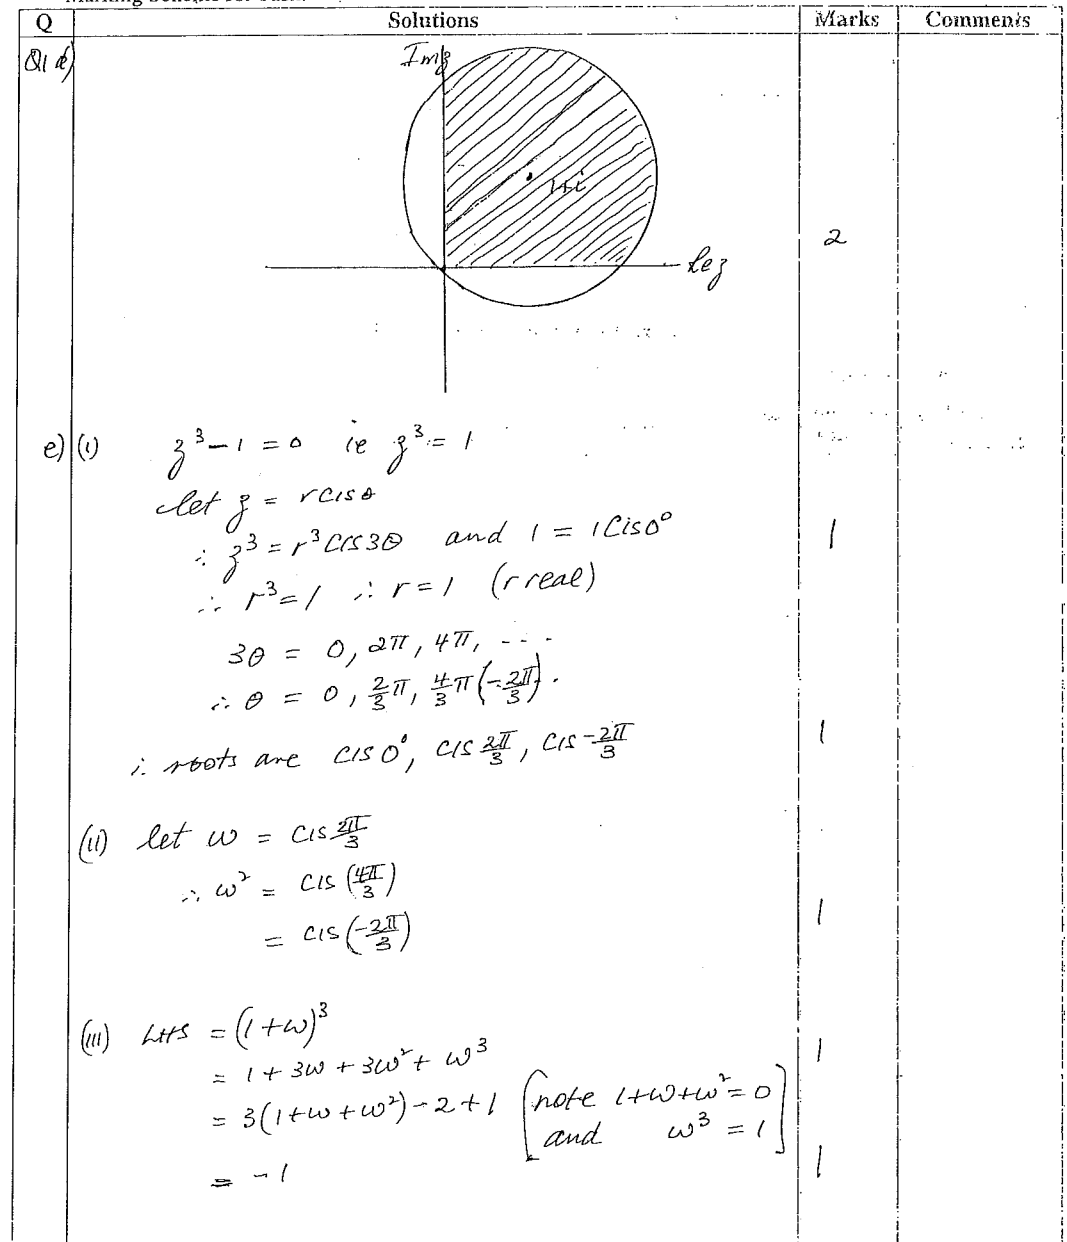 Q Solutions Marks Comments
Q1 d)
Im z
1+i
2
Re z
e) (i) z³ - 1 = 0 ie z³ = 1
let z = r cis θ
∴ z³ = r³ cis 3θ and 1 = 1 Cis 0° 1
∴ r³ = 1 ∴ r = 1 (r real)
3θ = 0, 2π, 4π, ----
∴ θ = 0, 2/3 π, 4/3 π (-2π/3).
∴ roots are cis 0°, cis 2π/3, cis -2π/3 1
(ii) let ω = cis 2π/3
∴ ω² = cis (4π/3)
= cis (-2π/3) 1
(iii) LHS = (1 + ω)³
= 1 + 3ω + 3ω² + ω³ 1
= 3(1 + ω + ω²) - 2 + 1 [note 1+ω+ω² = 0
and ω³ = 1]
= -1 1